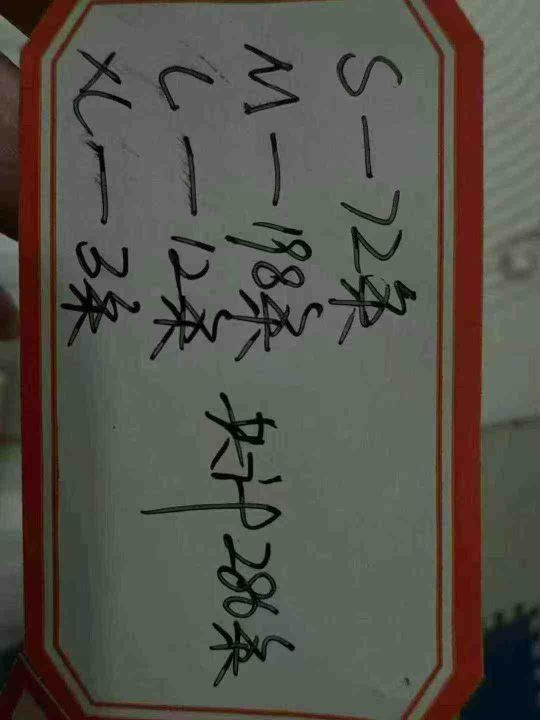 S—72条
M—198条
L—12条
XL—3条
共计286条